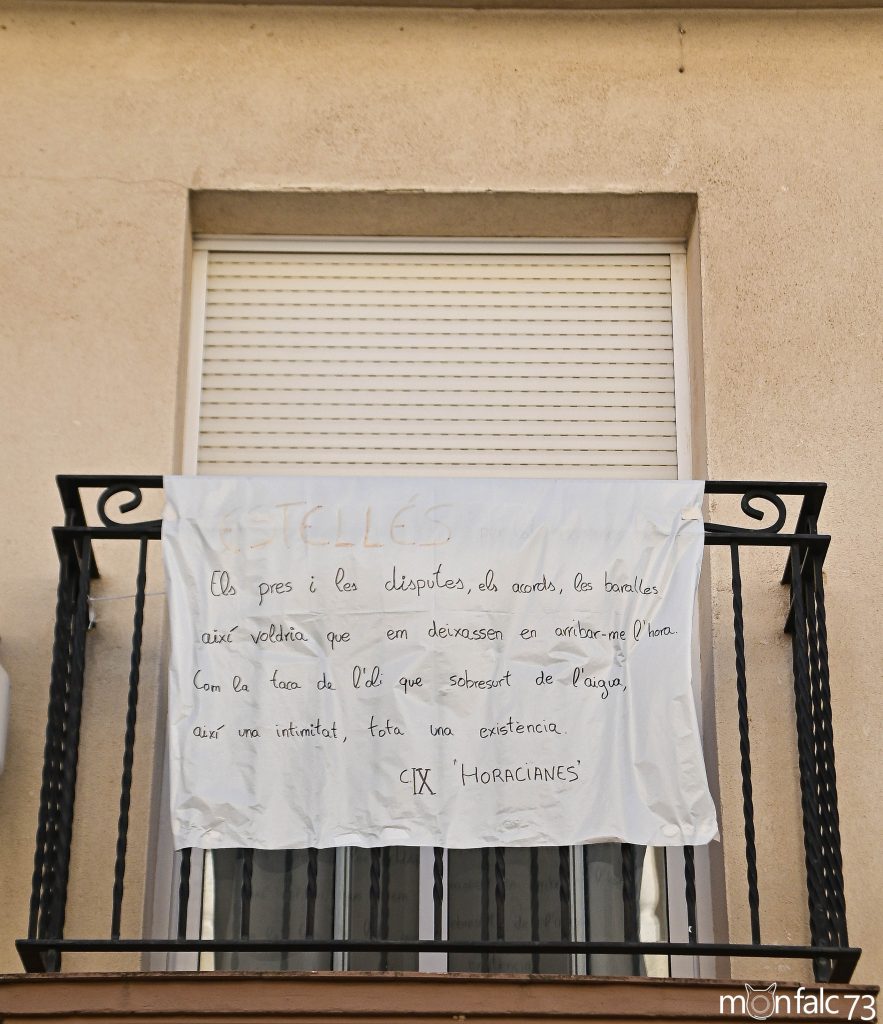 ESTELLÉS
Els pres i les disputes, els acords, les baralles
així voldria que em deixassen en arribar-me l'hora.
Com la taca de l'oli que sobresurt de l'aigua,
així una intimitat, tota una existència.
CIX 'HORACIANES'
monfalc73